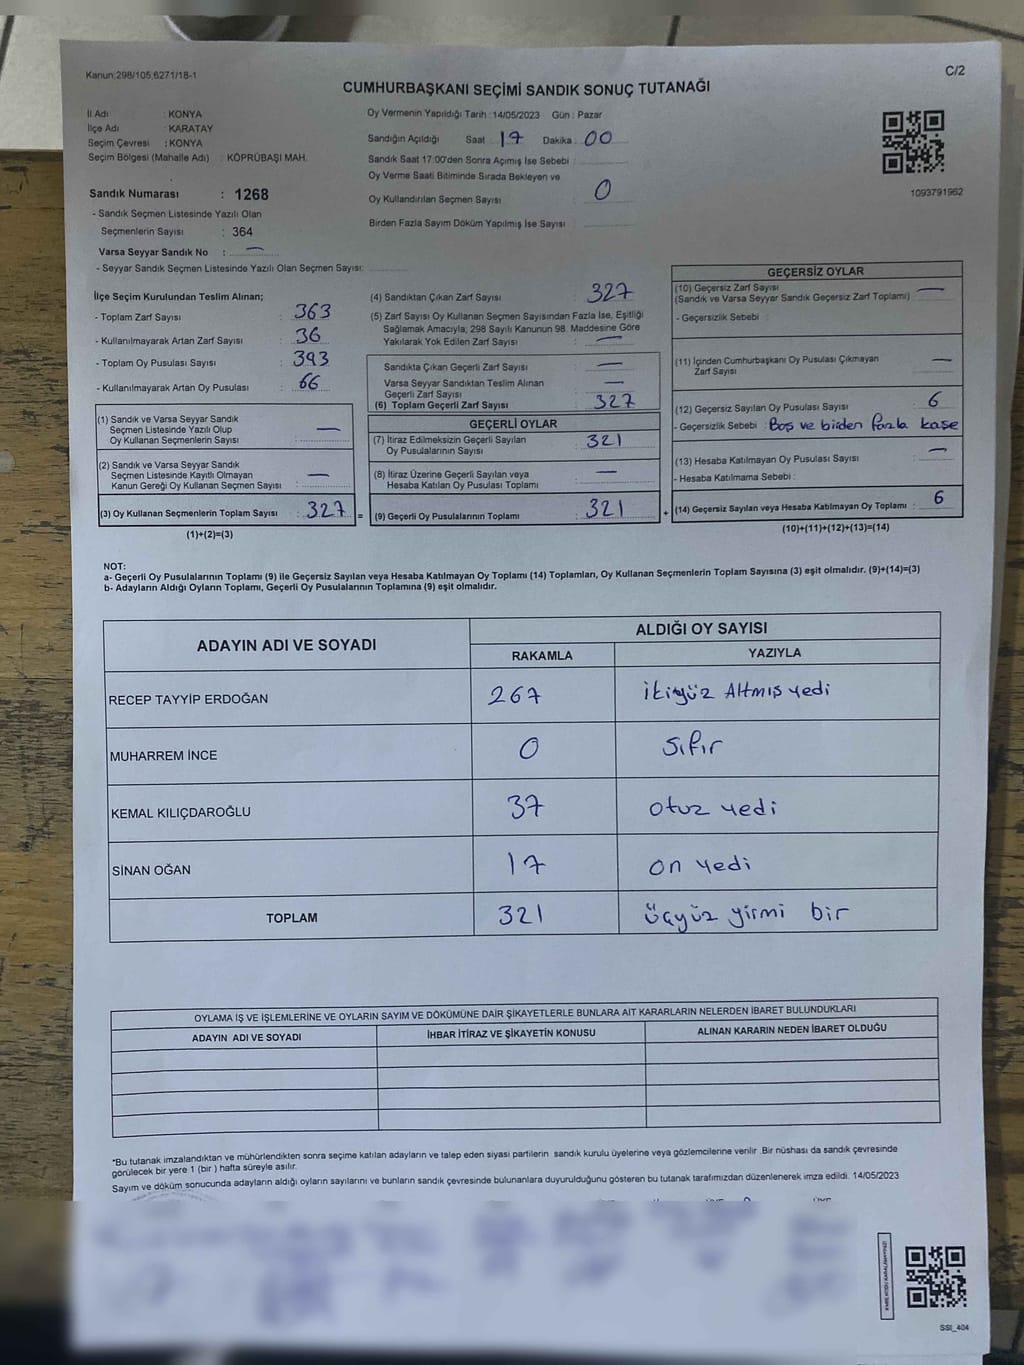 Kanun:298/105,6271/18-1
C/2
CUMHURBAŞKANI SEÇİMİ SANDIK SONUÇ TUTANAĞI
İl Adı : KONYA
İlçe Adı : KARATAY
Seçim Çevresi : KONYA
Seçim Bölgesi (Mahalle Adı) : KÖPRÜBAŞI MAH.
Sandık Numarası : 1268
- Sandık Seçmen Listesinde Yazılı Olan
Seçmenlerin Sayısı : 364
Varsa Seyyar Sandık No : —
- Seyyar Sandık Seçmen Listesinde Yazılı Olan Seçmen Sayısı:
Oy Vermenin Yapıldığı Tarih :14/05/2023 Gün : Pazar
Sandığın Açıldığı Saat 17 Dakika 00
Sandık Saat 17:00'den Sonra Açımış İse Sebebi :
Oy Verme Saati Bitiminde Sırada Bekleyen ve
Oy Kullandırılan Seçmen Sayısı : 0
Birden Fazla Sayım Döküm Yapılmış İse Sayısı :
1093791962
İlçe Seçim Kurulundan Teslim Alınan;
- Toplam Zarf Sayısı : 363
- Kullanılmayarak Artan Zarf Sayısı : 36
- Toplam Oy Pusulası Sayısı : 393
- Kullanılmayarak Artan Oy Pusulası : 66
(1) Sandık ve Varsa Seyyar Sandık
Seçmen Listesinde Yazılı Olup
Oy Kullanan Seçmenlerin Sayısı : —
(2) Sandık ve Varsa Seyyar Sandık
Seçmen Listesinde Kayıtlı Olmayan
Kanun Gereği Oy Kullanan Seçmen Sayısı : —
(3) Oy Kullanan Seçmenlerin Toplam Sayısı : 327 =
(1)+(2)=(3)
(4) Sandıktan Çıkan Zarf Sayısı : 327
(5) Zarf Sayısı Oy Kullanan Seçmen Sayısından Fazla İse, Eşitliği
Sağlamak Amacıyla; 298 Sayılı Kanunun 98. Maddesine Göre
Yakılarak Yok Edilen Zarf Sayısı : —
Sandıkta Çıkan Geçerli Zarf Sayısı : —
Varsa Seyyar Sandıktan Teslim Alınan
Geçerli Zarf Sayısı : —
(6) Toplam Geçerli Zarf Sayısı : 327
GEÇERLİ OYLAR
(7) İtiraz Edilmeksizin Geçerli Sayılan
Oy Pusulalarının Sayısı : 321
(8) İtiraz Üzerine Geçerli Sayılan veya
Hesaba Katılan Oy Pusulası Toplamı : —
(9) Geçerli Oy Pusulalarının Toplamı : 321 +
GEÇERSİZ OYLAR
(10) Geçersiz Zarf Sayısı
(Sandık ve Varsa Seyyar Sandık Geçersiz Zarf Toplamı) : —
- Geçersizlik Sebebi :
(11) İçinden Cumhurbaşkanı Oy Pusulası Çıkmayan
Zarf Sayısı : —
(12) Geçersiz Sayılan Oy Pusulası Sayısı : 6
- Geçersizlik Sebebi : Boş ve birden fazla kaşe
(13) Hesaba Katılmayan Oy Pusulası Sayısı : —
- Hesaba Katılmama Sebebi :
(14) Geçersiz Sayılan veya Hesaba Katılmayan Oy Toplamı : 6
(10)+(11)+(12)+(13)=(14)
NOT:
a- Geçerli Oy Pusulalarının Toplamı (9) ile Geçersiz Sayılan veya Hesaba Katılmayan Oy Toplamı (14) Toplamları, Oy Kullanan Seçmenlerin Toplam Sayısına (3) eşit olmalıdır. (9)+(14)=(3)
b- Adayların Aldığı Oyların Toplamı, Geçerli Oy Pusulalarının Toplamına (9) eşit olmalıdır.
ADAYIN ADI VE SOYADI ALDIĞI OY SAYISI
RAKAMLA YAZIYLA
RECEP TAYYİP ERDOĞAN 267 ikiyüz Altmış yedi
MUHARREM İNCE 0 sıfır
KEMAL KILIÇDAROĞLU 37 otuz yedi
SİNAN OĞAN 17 on yedi
TOPLAM 321 üçyüz yirmi bir
OYLAMA İŞ VE İŞLEMLERİNE VE OYLARIN SAYIM VE DÖKÜMÜNE DAİR ŞİKAYETLERLE BUNLARA AİT KARARLARIN NELERDEN İBARET BULUNDUKLARI
ADAYIN ADI VE SOYADI İHBAR İTİRAZ VE ŞİKAYETİN KONUSU ALINAN KARARIN NEDEN İBARET OLDUĞU
*Bu tutanak imzalandıktan ve mühürlendikten sonra seçime katılan adayların ve talep eden siyasi partilerin sandık kurulu üyelerine veya gözlemcilerine verilir .Bir nüshası da sandık çevresinde
görülecek bir yere 1 (bir ) hafta süreyle asılır.
Sayım ve döküm sonucunda adayların aldığı oyların sayılarını ve bunların sandık çevresinde bulunanlara duyurulduğunu gösteren bu tutanak tarafımızdan düzenlenerek imza edildi. 14/05/2023
SSI_404